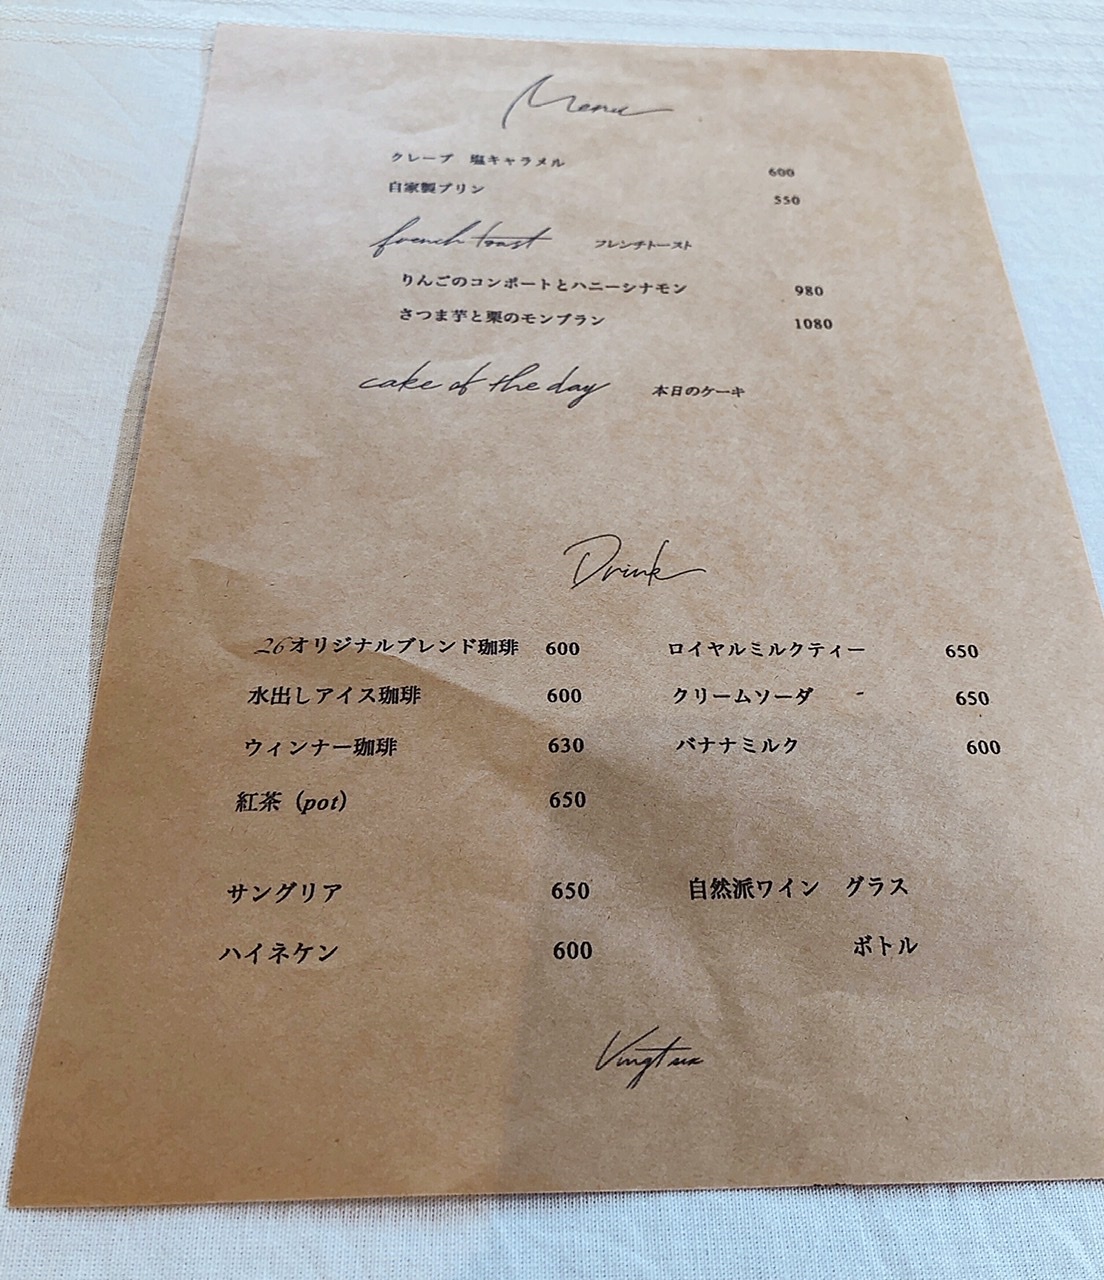 Menu
クレープ　塩キャラメル 600
自家製プリン 550
french toast フレンチトースト
りんごのコンポートとハニーシナモン 980
さつま芋と栗のモンブラン 1080
cake of the day 本日のケーキ
Drink
26オリジナルブレンド珈琲 600 ロイヤルミルクティー 650
水出しアイス珈琲 600 クリームソーダ 650
ウィンナー珈琲 630 バナナミルク 600
紅茶（pot） 650
サングリア 650 自然派ワイン　グラス
ハイネケン 600 ボトル
Vingt six